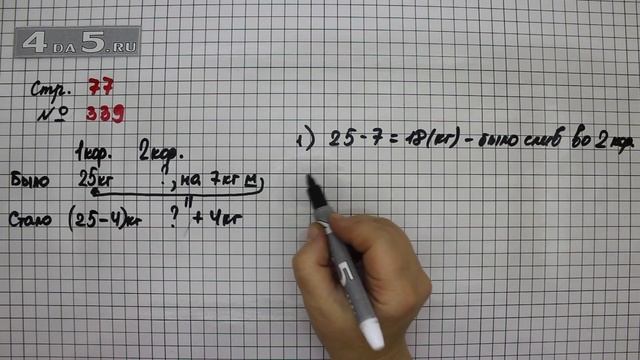 4DA5.RU
Стр. 77
№ 339
1кор. 2кор.
Было 25кг ?, на 7кг м
Стало (25-4)кг ? + 4кг
1) 25-7=18(кг) - было слив во 2 кор.
5